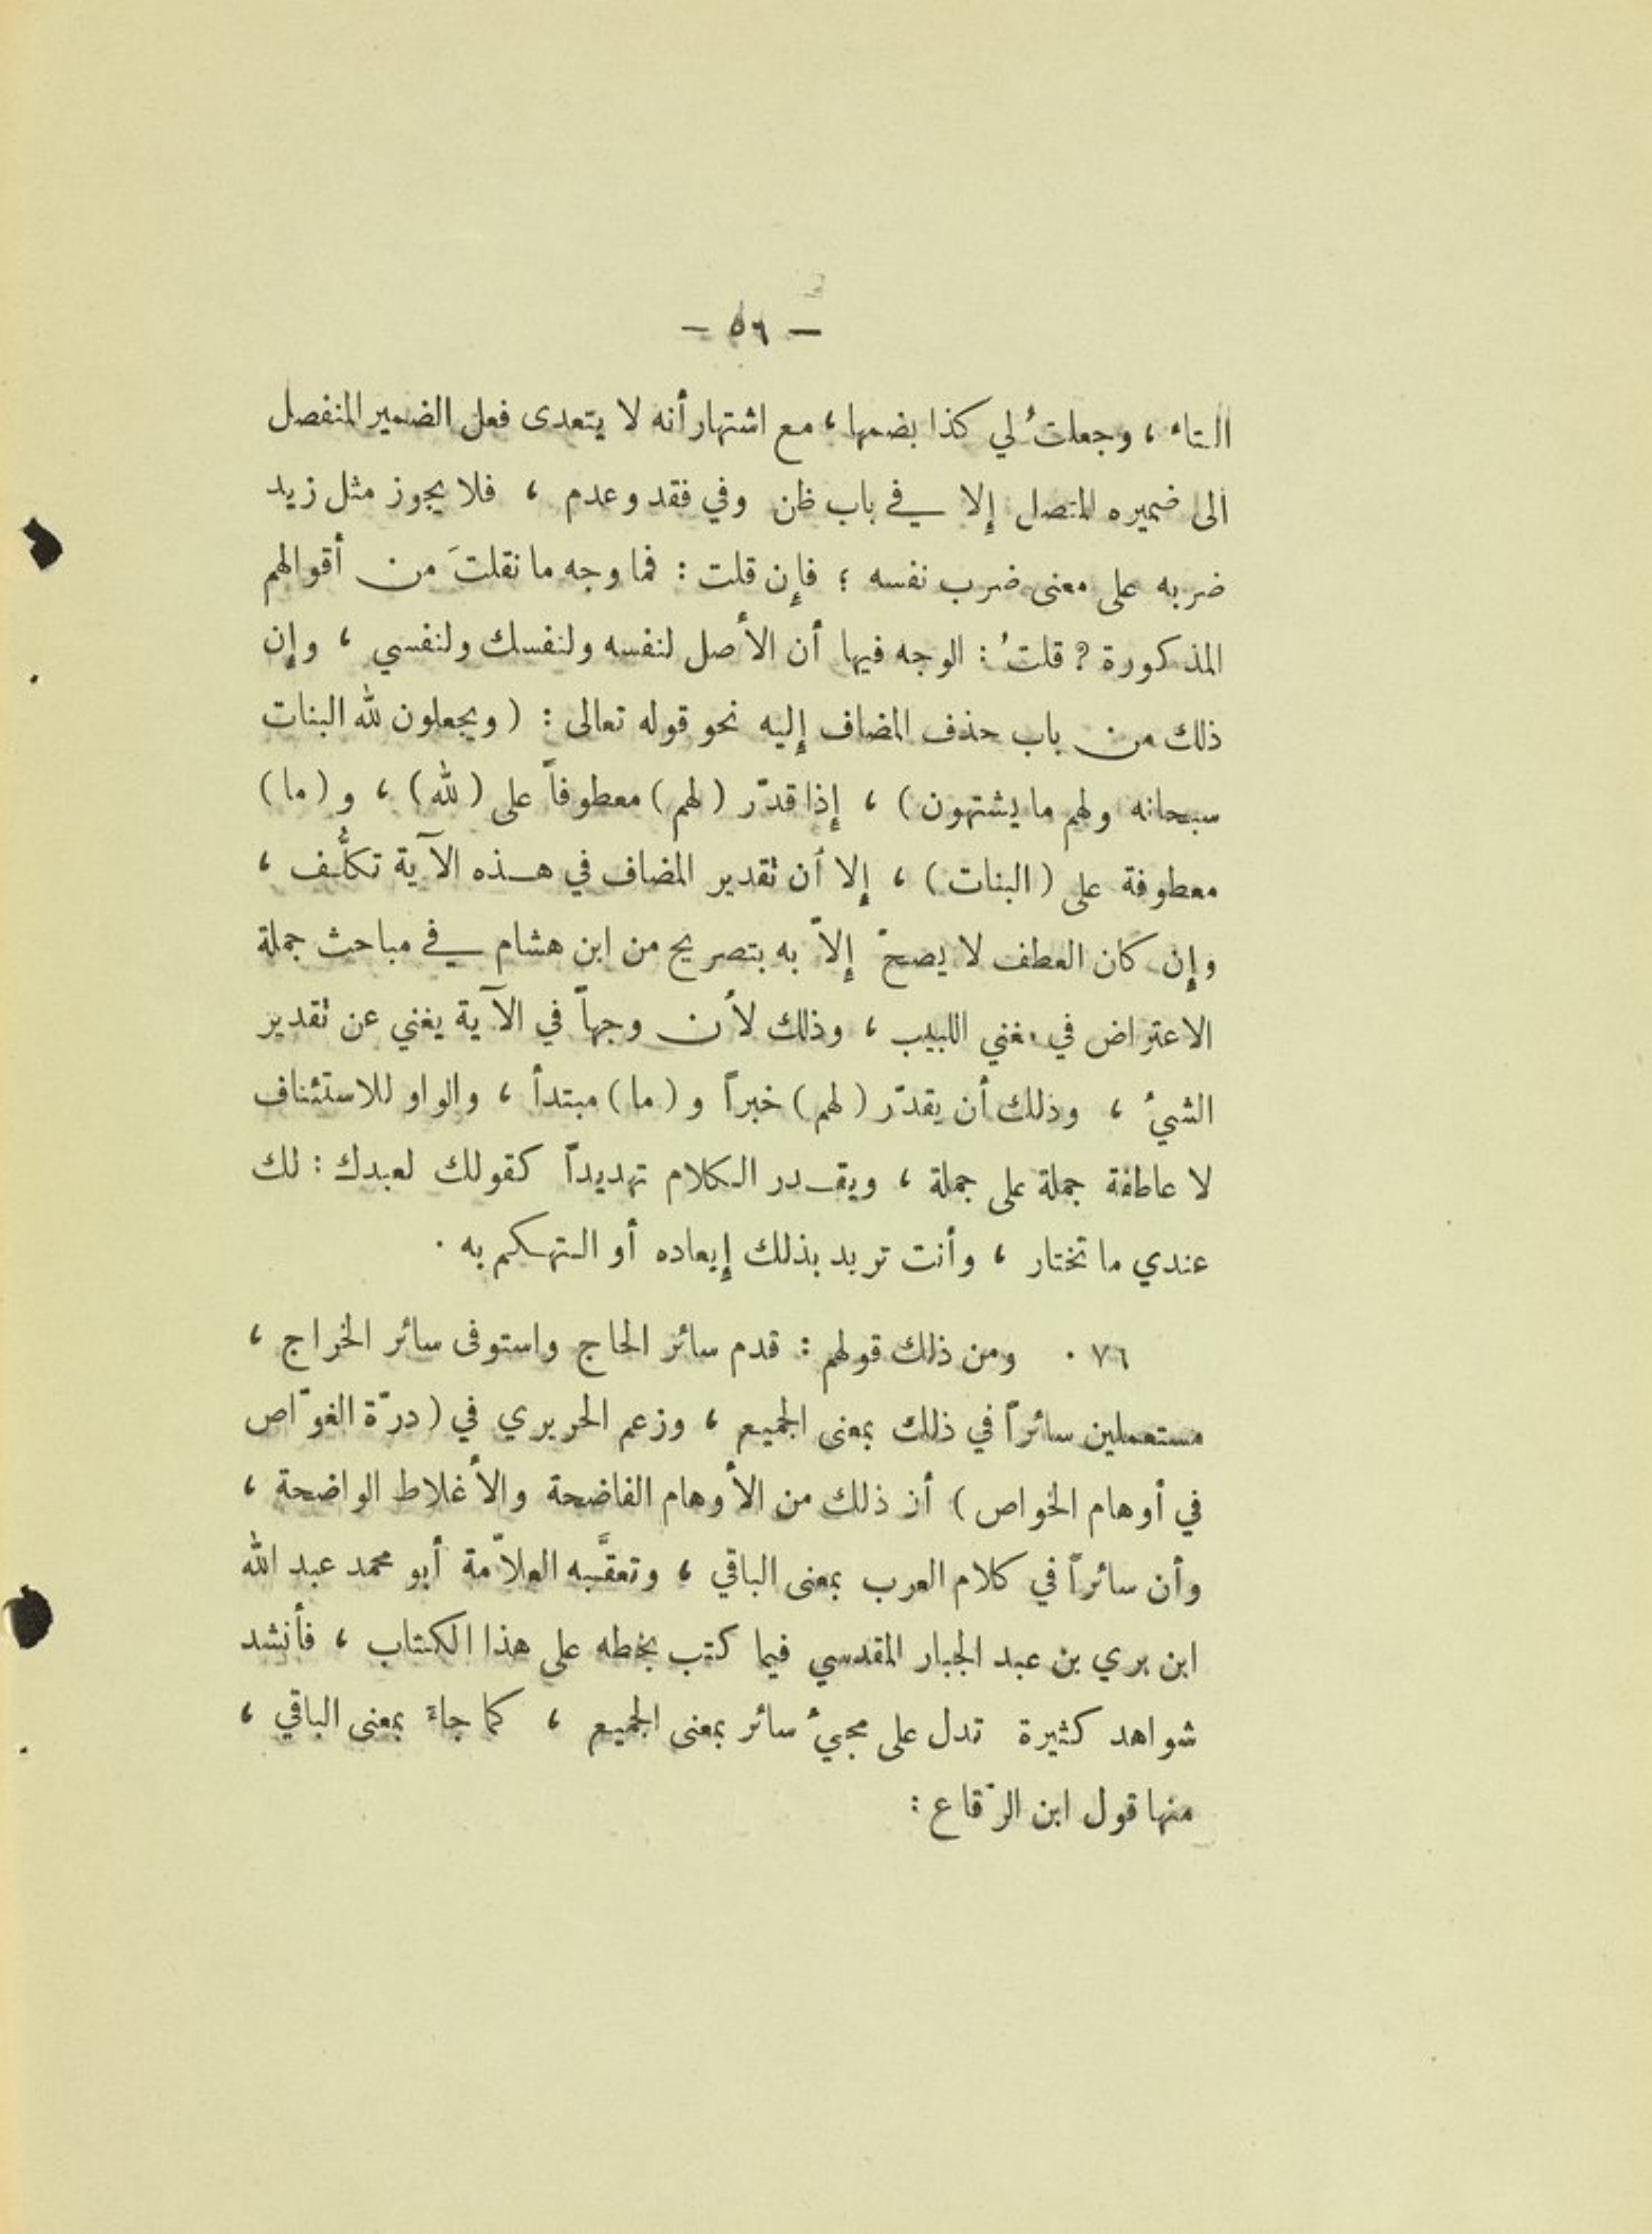 — ٥٦ —
التاء ، وجعلتُ لي كذا بضمها ، مع اشتهار أنه لا يتعدى فعل الضمير المنفصل
الى ضميره المتصل إلا في باب ظن وفي فقد وعدم ، فلا يجوز مثل زيد
ضربه على معنى ضرب نفسه ؛ فإن قلت : فما وجه ما نقلتَ من أقوالهم
المذكورة ? قلتُ : الوجه فيها أن الأصل لنفسه ولنفسك ولنفسي ، وإن
ذلك من باب حذف المضاف إليه نحو قوله تعالى : ( ويجعلون لله البنات
سبحانه ولهم ما يشتهون ) ، إذا قدّر ( لهم ) معطوفاً على ( لله ) ، و ( ما )
معطوفة على ( البنات ) ، إلا أن تقدير المضاف في هذه الآية تكلُّف ،
وإن كان العطف لا يصحّ إلاّ به بتصريح من ابن هشام في مباحث جملة
الاعتراض في مغني اللبيب ، وذلك لأن وجهاً في الآية يغني عن تقدير
الشيءُ ، وذلك أن يقدّر ( لهم ) خبراً و ( ما ) مبتدأ ، والواو للاستئناف
لا عاطفة جملة على جملة ، ويقدر الكلام تهديداً كقولك لعبدك : لك
عندي ما تختار ، وأنت تريد بذلك إيعاده أو التهكم به .
٧٦ . ومن ذلك قولهم : قدم سائر الحاج واستوفى سائر الخراج ،
مستعملين سائراً في ذلك بمعنى الجميع ، وزعم الحريري في ( درّة الغوّاص
في أوهام الخواص ) أن ذلك من الأوهام الفاضحة والأغلاط الواضحة ،
وأن سائراً في كلام العرب بمعنى الباقي ، وتعقَّبه العلاّمة أبو محمد عبد الله
ابن بري بن عبد الجبار المقدسي فيما كتب بخطه على هذا الكتاب ، فأنشد
شواهد كثيرة تدل على مجيءُ سائر بمعنى الجميع ، كما جاءَ بمعنى الباقي ،
منها قول ابن الرّقاع :